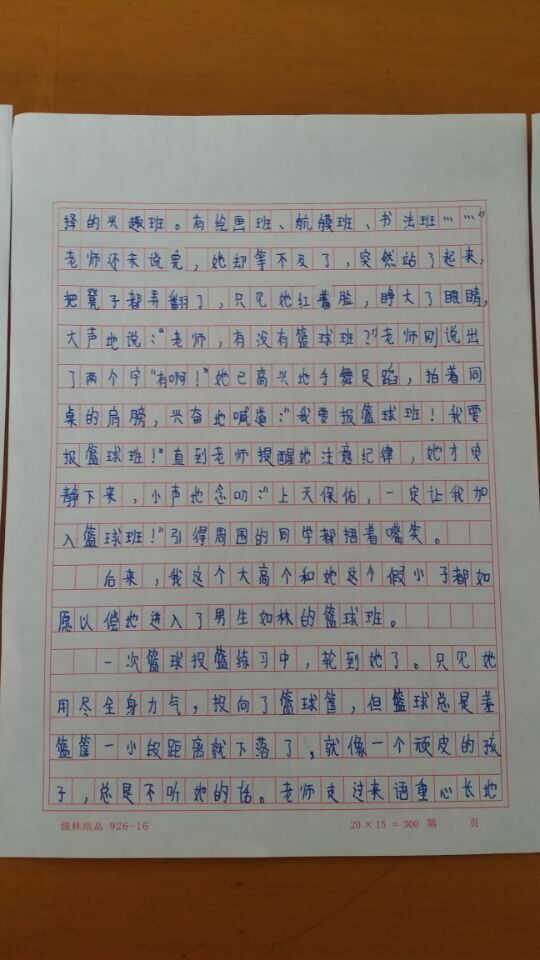 择的兴趣班。有绘画班、航模班、书法班……”
老师还未说完，她却等不及了，突然站了起来，
把凳子都弄翻了，只见她红着脸，睁大了眼睛，
大声地说：“老师，有没有篮球班？”老师刚说出
了两个字“有啊！”她已高兴地手舞足蹈，拍着同
桌的肩膀，兴奋地喊道：“我要报篮球班！我要
报篮球班！”直到老师提醒她注意纪律，她才安
静下来，小声地念叨：“上天保佑，一定让我加
入篮球班！”引得周围的同学都捂着嘴笑。
后来，我这个大高个和她这个假小子都如
愿以偿地进入了男生如林的篮球班。
一次篮球投篮练习中，轮到她了。只见她
用尽全身力气，投向了篮球筐，但篮球总是差
篮筐一小段距离就下落了，就像一个顽皮的孩
子，总是不听她的话。老师走过来语重心长地
缀林纸品 926-16 20×15=300 第 页